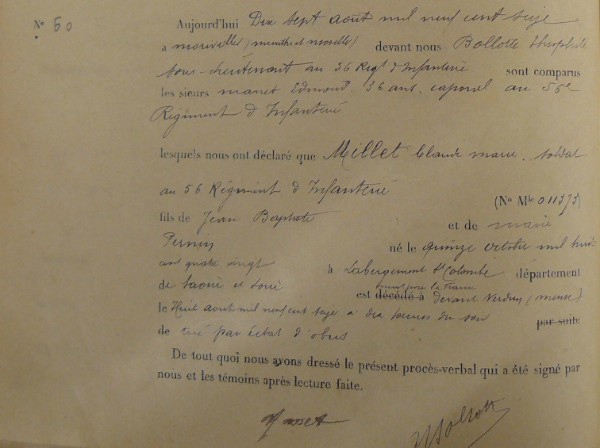 N° 50
Aujourd'hui Dix sept aout mil neuf cent seize
a morville (meurthe et moselle) devant nous Bollotte Theophile
sous-Lieutenant au 56 Regt d'Infanterie sont comparus
les sieurs manet Edmond, 36 ans, caporal au 56e
Régiment d'Infanterie
lesquels nous ont déclaré que Millet Claude marie, soldat
au 56 Régiment d'Infanterie
(No Mle 011373)
fils de Jean Baptiste et de marie
né le quinze octobre mil huit
cent quatre vingt à Labergement Ste Colombe département
de Saone et Loire est décédé à Devant Verdun (meuse)
mort pour la France
le Huit aout mil neuf cent seize à dix heures du soir par suite
de tué par éclat d'obus
De tout quoi nous avons dressé le présent procès-verbal qui a été signé par
nous et les témoins après lecture faite.